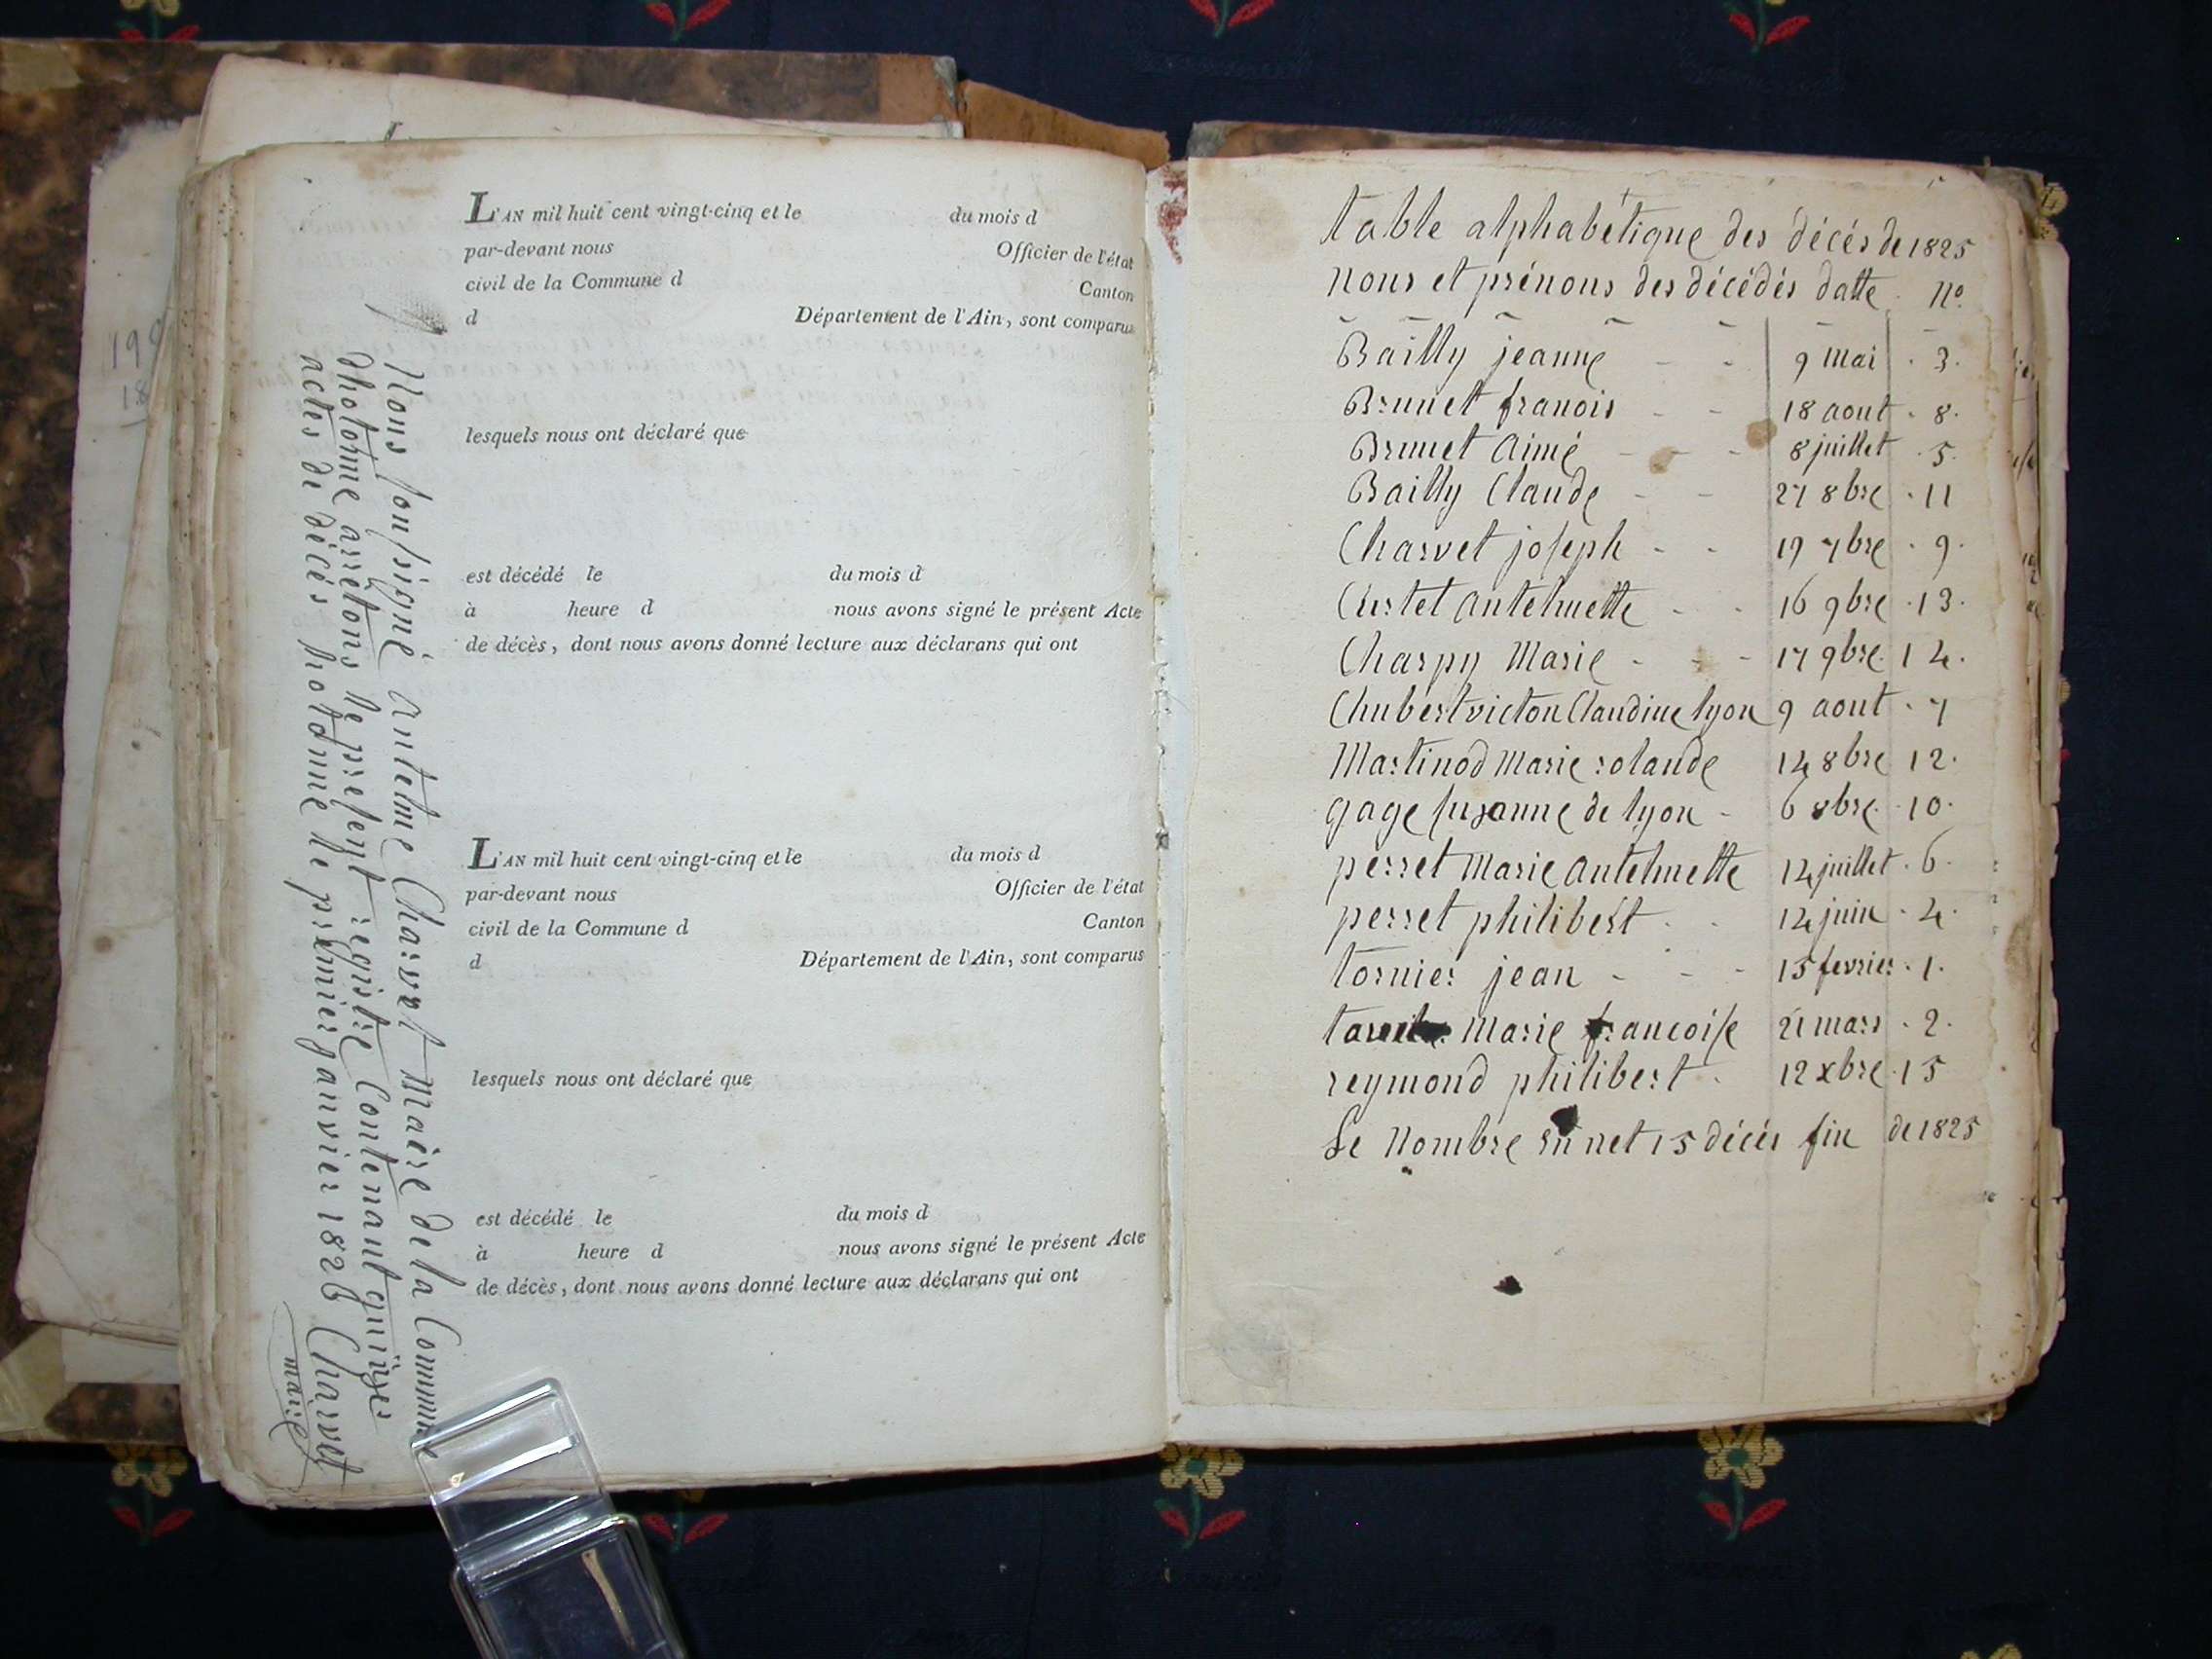 L'AN mil huit cent vingt-cinq et le du mois d
par-devant nous Officier de l'état
civil de la Commune d Canton
d Département de l'Ain, sont comparus
lesquels nous ont déclaré que
est décédé le du mois d
à heure d nous avons signé le présent Acte
de décès, dont nous avons donné lecture aux déclarans qui ont
L'AN mil huit cent vingt-cinq et le du mois d
par-devant nous Officier de l'état
civil de la Commune d Canton
d Département de l'Ain, sont comparus
lesquels nous ont déclaré que
est décédé le du mois d
à heure d nous avons signé le présent Acte
de décès, dont nous avons donné lecture aux déclarans qui ont
Nous soussigné antelme Charvet Maire de la Commune
dhotonne arrêtons le present registre Contenant quinze
actes de décés hotonne le premier janvier 1826 Charvet
maire
table alphabétique des décés de 1825
nons et prénons des décédés datte No
Bailly jeanne 9 mai 3.
Brunet franois 18 aout 8.
Brunet aimé 8 juillet 5.
Bailly Claude 27 8bre 11
Charvet joseph 19 7bre 9.
antelmette 16 9bre 13.
Charpy Marie 17 9bre 14.
Chubert victon Claudine lyon 9 aout 7
Martinod Marie rolande 14 8bre 12.
gage susanne de lyon 6 8bre 10.
perret Marie antelmette 14 juillet 6.
perret philibert 14 juin 4.
tornier jean 15 fevrier 1.
Marie francoise 21 mars 2.
reymond philibert 12 xbre 15
Le Nombre en net 15 décés fin de 1825